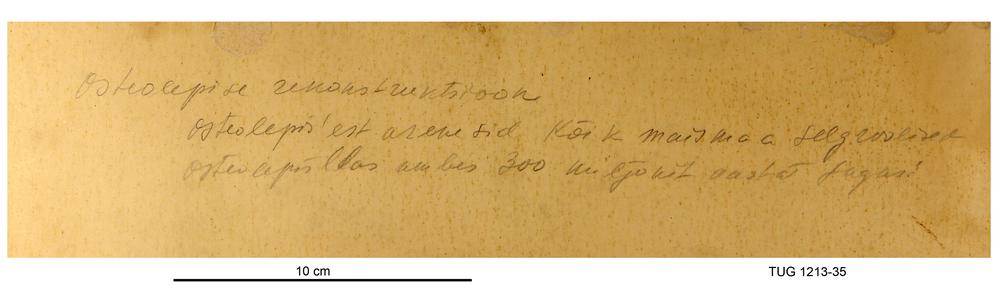 Osteolepise rekonstruktsioon
Osteolepis'est arenesid kõik maismaa selgroolised
Osteolepis elas umbes 300 miljonit aastat tagasi
10 cm
TUG 1213-35